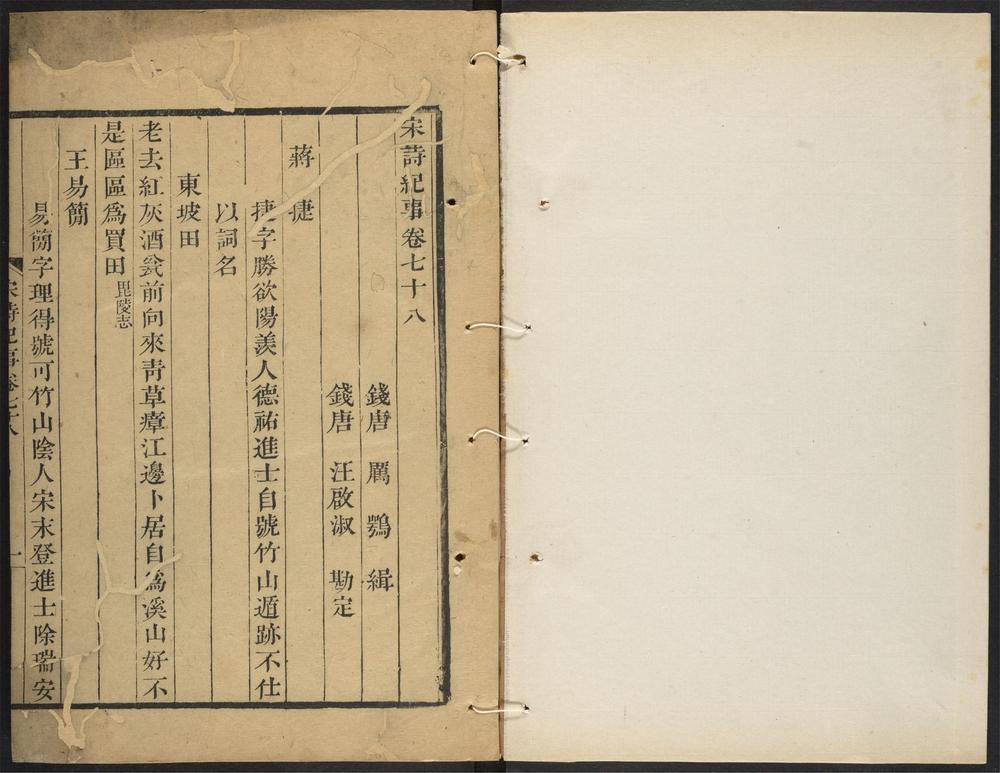 宋詩紀事卷七十八
錢唐 厲鶚 緝
錢唐 汪啟淑 勘定
蔣捷
捷字勝欲陽羨人德祐進士自號竹山遁跡不仕
以詞名
東坡田
老去紅灰酒瓮前向來靑草瘴江邊卜居自爲溪山好不
是區區爲買田毘陵志
王易簡
易簡字理得號可竹山陰人宋末登進士除瑞安
宋詩紀事卷七十八 一